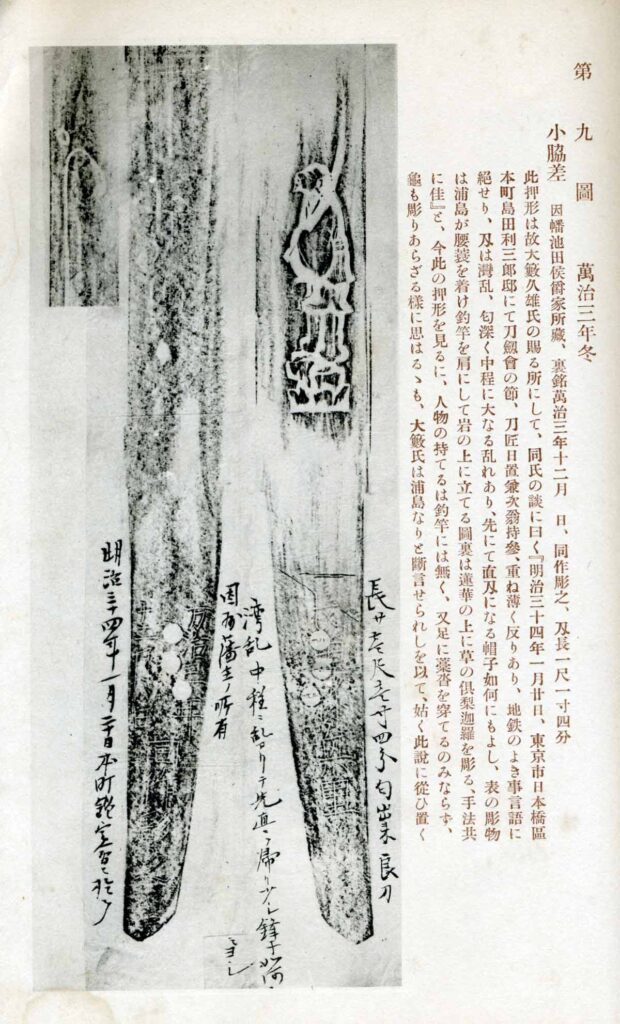 第九圖　萬治三年冬
小脇差　因幡池田侯爵家所藏、裏銘萬治三年十二月　日、同作彫之、刄長一尺一寸四分
此押形は故大籔久雄氏の賜る所にして、同氏の談に曰く『明治三十四年一月廿日、東京市日本橋區
本町島田利三郎邸にて刀劔會の節、刀匠日置兼次翁持參、重ね薄く反りあり、地鉄のよき事言語に
絕せり、刄は灣乱、匂深く中程に大なる乱れあり、先にて直刄になる帽子如何にもよし、表の彫物
は浦島が腰蓑を着け釣竿を肩にして岩の上に立てる圖裏は蓮華の上に草の倶梨迦羅を彫る、手法共
に佳』と、今此の押形を見るに、人物の持てるは釣竿には無く、又足に藁沓を穿てるのみならず、
龜も彫りあらざる樣に思はるゝも、大籔氏は浦島なりと斷言せられしを以て、姑く此說に從ひ置く
長サ壱尺壱寸四分匂出来良刀
湾乱中程ニ乱アリテ先直
因州藩士ノ所有
明治三十四年一月二十日本町
萬治